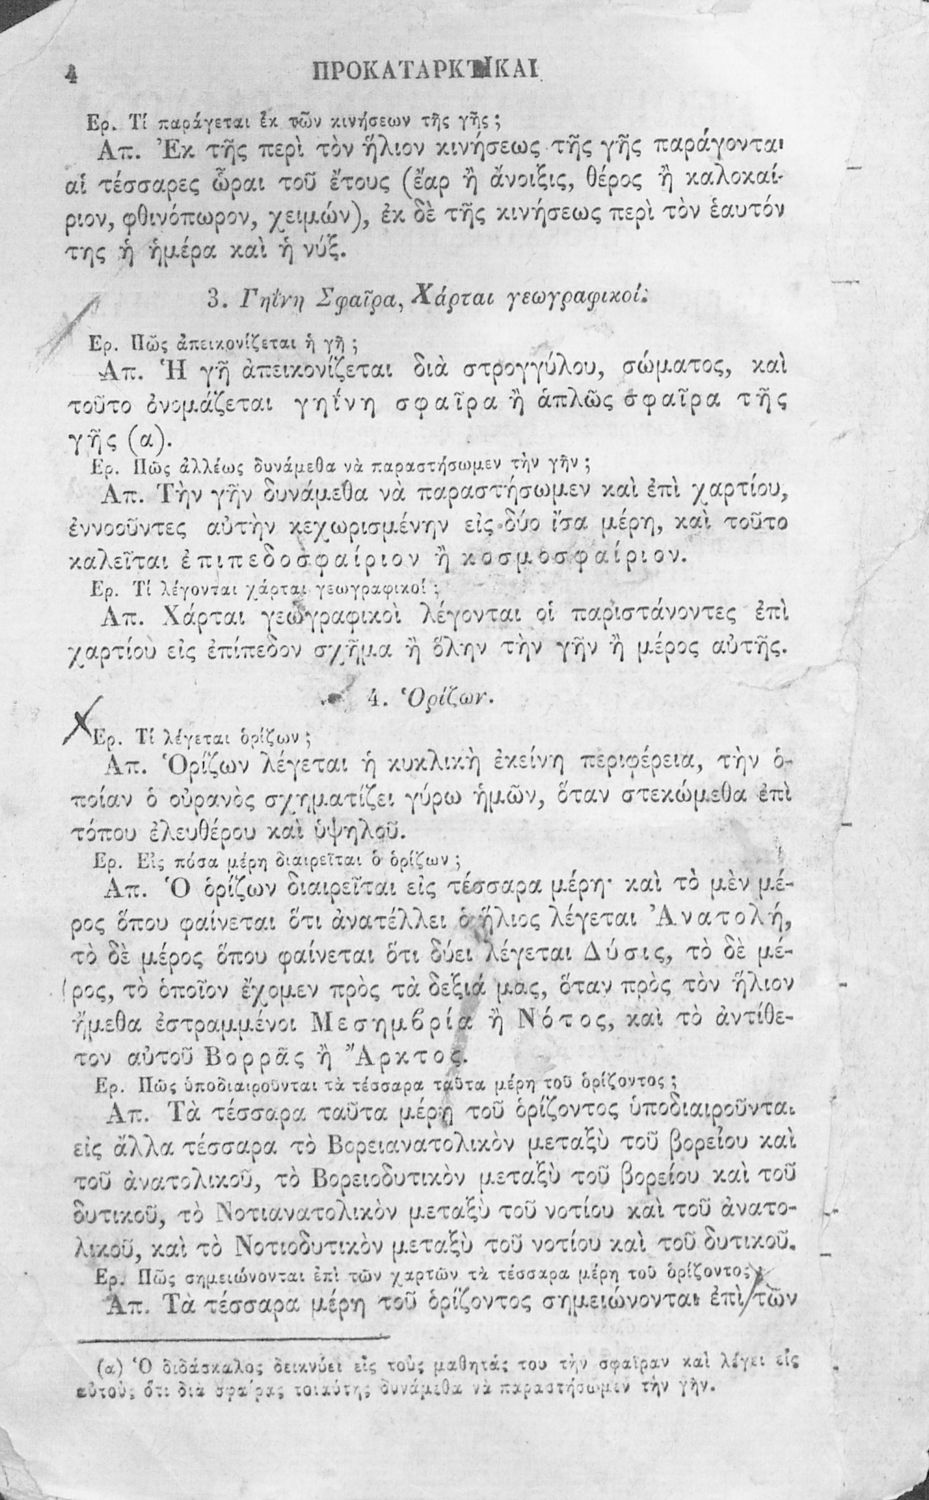 4
ΠΡΟΚΑΤΑΡΚΤΙΚΑΙ
Ερ. Τί παράγεται ἐκ τῶν κινήσεων τῆς γῆς ;
Απ. Ἐκ τῆς περὶ τὸν ἥλιον κινήσεως τῆς γῆς παράγονται
αἱ τέσσαρες ὧραι τοῦ ἔτους (ἔαρ ἢ ἄνοιξις, θέρος ἢ καλοκαί-
ριον, φθινόπωρον, χειμών), ἐκ δὲ τῆς κινήσεως περὶ τὸν ἑαυτόν
της ἡ ἡμέρα καὶ ἡ νύξ.
3. Γηΐνη Σφαῖρα, Χάρται γεωγραφικοί.
Ερ. Πῶς ἀπεικονίζεται ἡ γῆ ;
Απ. Ἡ γῆ ἀπεικονίζεται διὰ στρογγύλου, σώματος, καὶ
τοῦτο ὀνομάζεται γηΐνη σφαῖρα ἢ ἁπλῶς σφαῖρα τῆς
γῆς (α).
Ερ. Πῶς ἀλλέως δυνάμεθα νὰ παραστήσωμεν τὴν γῆν ;
Απ. Τὴν γῆν δυνάμεθα νὰ παραστήσωμεν καὶ ἐπὶ χαρτίου,
ἐννοοῦντες αὐτὴν κεχωρισμένην εἰς δύο ἴσα μέρη, καὶ τοῦτο
καλεῖται ἐπιπεδοσφαίριον ἢ κοσμοσφαίριον.
Ερ. Τί λέγονται χάρται γεωγραφικοί ;
Απ. Χάρται γεωγραφικοὶ λέγονται οἱ παριστάνοντες ἐπὶ
χαρτίου εἰς ἐπίπεδον σχῆμα ἢ ὅλην τὴν γῆν ἢ μέρος αὐτῆς.
4. Ὁρίζων.
Ερ. Τί λέγεται ὁρίζων ;
Απ. Ὁρίζων λέγεται ἡ κυκλικὴ ἐκείνη περιφέρεια, τὴν ὁ-
ποίαν ὁ οὐρανὸς σχηματίζει γύρω ἡμῶν, ὅταν στεκώμεθα ἐπὶ
τόπου ἐλευθέρου καὶ ὑψηλοῦ.
Ερ. Εἰς πόσα μέρη διαιρεῖται ὁ ὁρίζων ;
Απ. Ὁ ὁρίζων διαιρεῖται εἰς τέσσαρα μέρη· καὶ τὸ μὲν μέ-
ρος ὅπου φαίνεται ὅτι ἀνατέλλει ὁ ἥλιος λέγεται Ἀνατολή,
τὸ δὲ μέρος ὅπου φαίνεται ὅτι δύει λέγεται Δύσις, τὸ δὲ μέ-
ρος, τὸ ὁποῖον ἔχομεν πρὸς τὰ δεξιά μας, ὅταν πρὸς τὸν ἥλιον
ἤμεθα ἐστραμμένοι Μεσημβρία ἢ Νότος, καὶ τὸ ἀντίθε-
τον αὐτοῦ Βορρᾶς ἢ Ἄρκτος.
Ερ. Πῶς ὑποδιαιροῦνται τὰ τέσσαρα ταῦτα μέρη τοῦ ὁρίζοντος ;
Απ. Τὰ τέσσαρα ταῦτα μέρη τοῦ ὁρίζοντος ὑποδιαιροῦνται
εἰς ἄλλα τέσσαρα τὸ Βορειανατολικὸν μεταξὺ τοῦ βορείου καὶ
τοῦ ἀνατολικοῦ, τὸ Βορειοδυτικὸν μεταξὺ τοῦ βορείου καὶ τοῦ
δυτικοῦ, τὸ Νοτιανατολικὸν μεταξὺ τοῦ νοτίου καὶ τοῦ ἀνατο-
λικοῦ, καὶ τὸ Νοτιοδυτικὸν μεταξὺ τοῦ νοτίου καὶ τοῦ δυτικοῦ.
Ερ. Πῶς σημειώνονται ἐπὶ τῶν χαρτῶν τὰ τέσσαρα μέρη τοῦ ὁρίζοντος ;
Απ. Τὰ τέσσαρα μέρη τοῦ ὁρίζοντος σημειώνονται ἐπὶ τῶν
(α) Ὁ διδάσκαλος δεικνύει εἰς τοὺς μαθητάς του τὴν σφαῖραν καὶ λέγει εἰς
αὐτούς ὅτι διὰ σφαίρας τοιαύτης δυνάμεθα νὰ παραστήσωμεν τὴν γῆν.